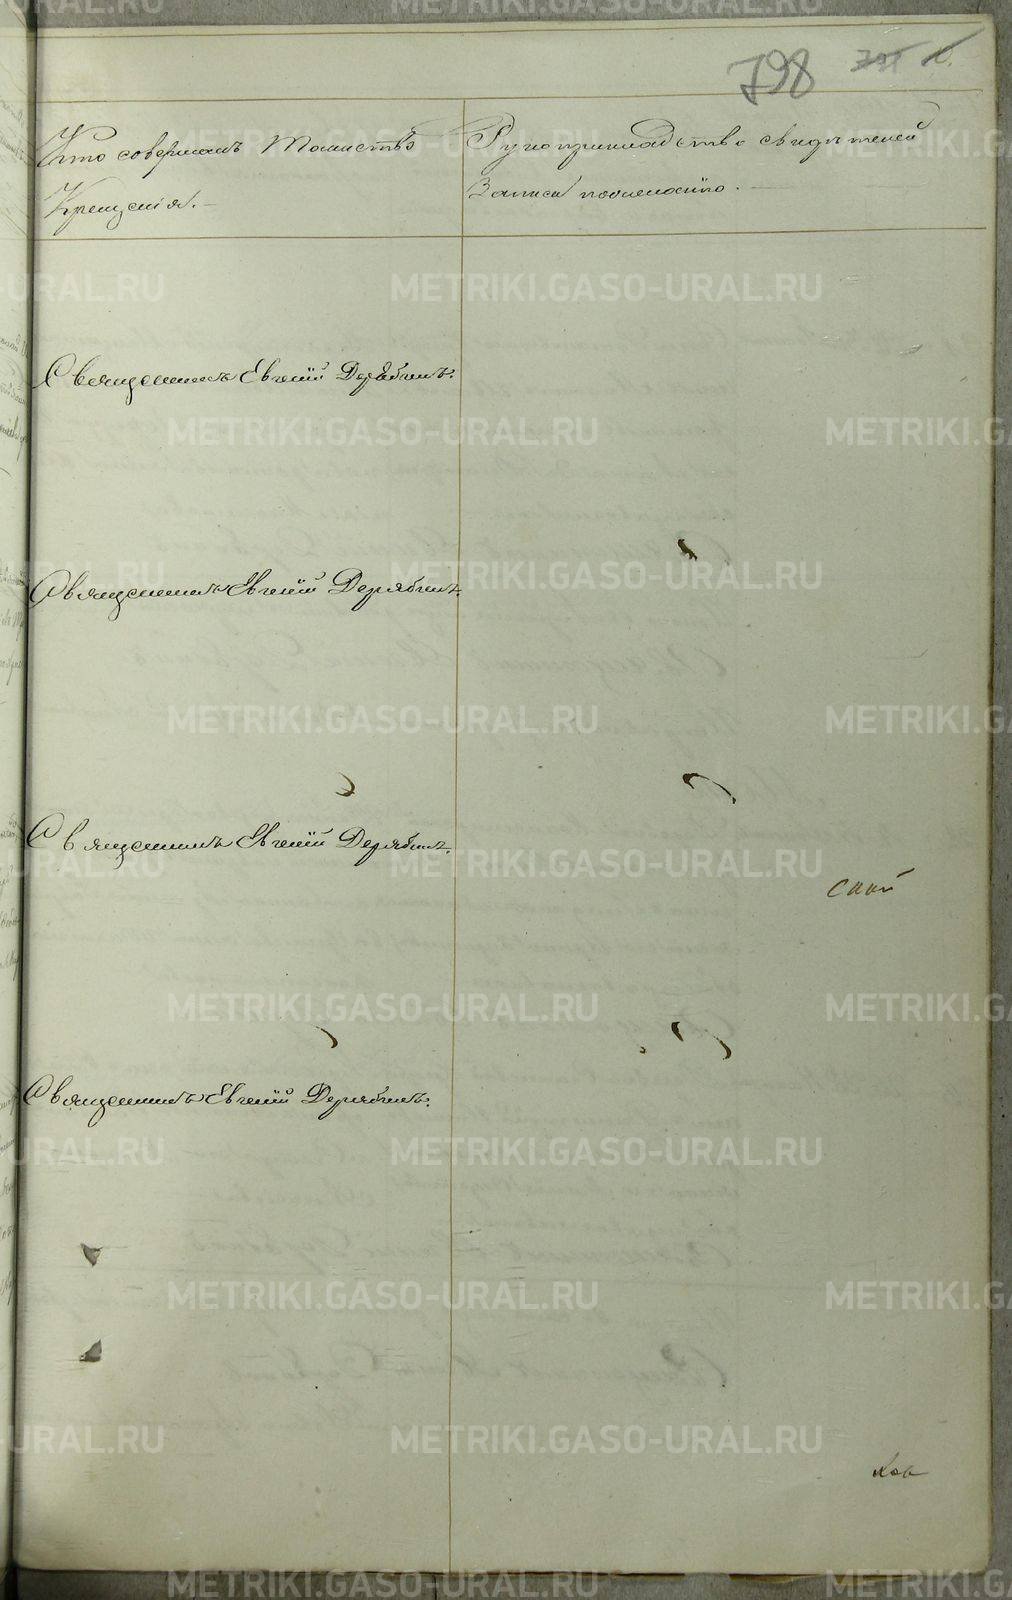 798
Кто совершалъ Таинство
Крещенія.
Рукоприкладство свидѣтелей
Записи по желанію.
Священникъ Евгеній Дерябинъ.
Священникъ Евгеній Дерябинъ.
Священникъ Евгеній Дерябинъ.
Священникъ Евгеній Дерябинъ.
METRIKI.GASO-URAL.RU